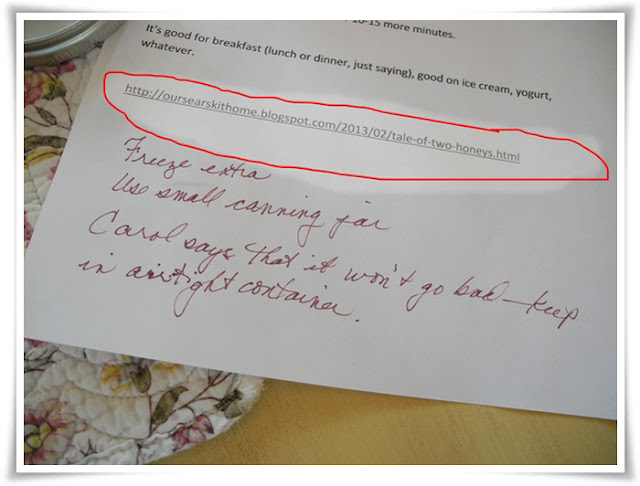 10-15 more minutes.
It's good for breakfast (lunch or dinner, just saying), good on ice cream, yogurt,
whatever.
http://oursearskithome.blogspot.com/2013/02/tale-of-two-honeys.html
Freeze extra
Use small canning jar
Carol says that it won't go bad – keep
in airtight container.